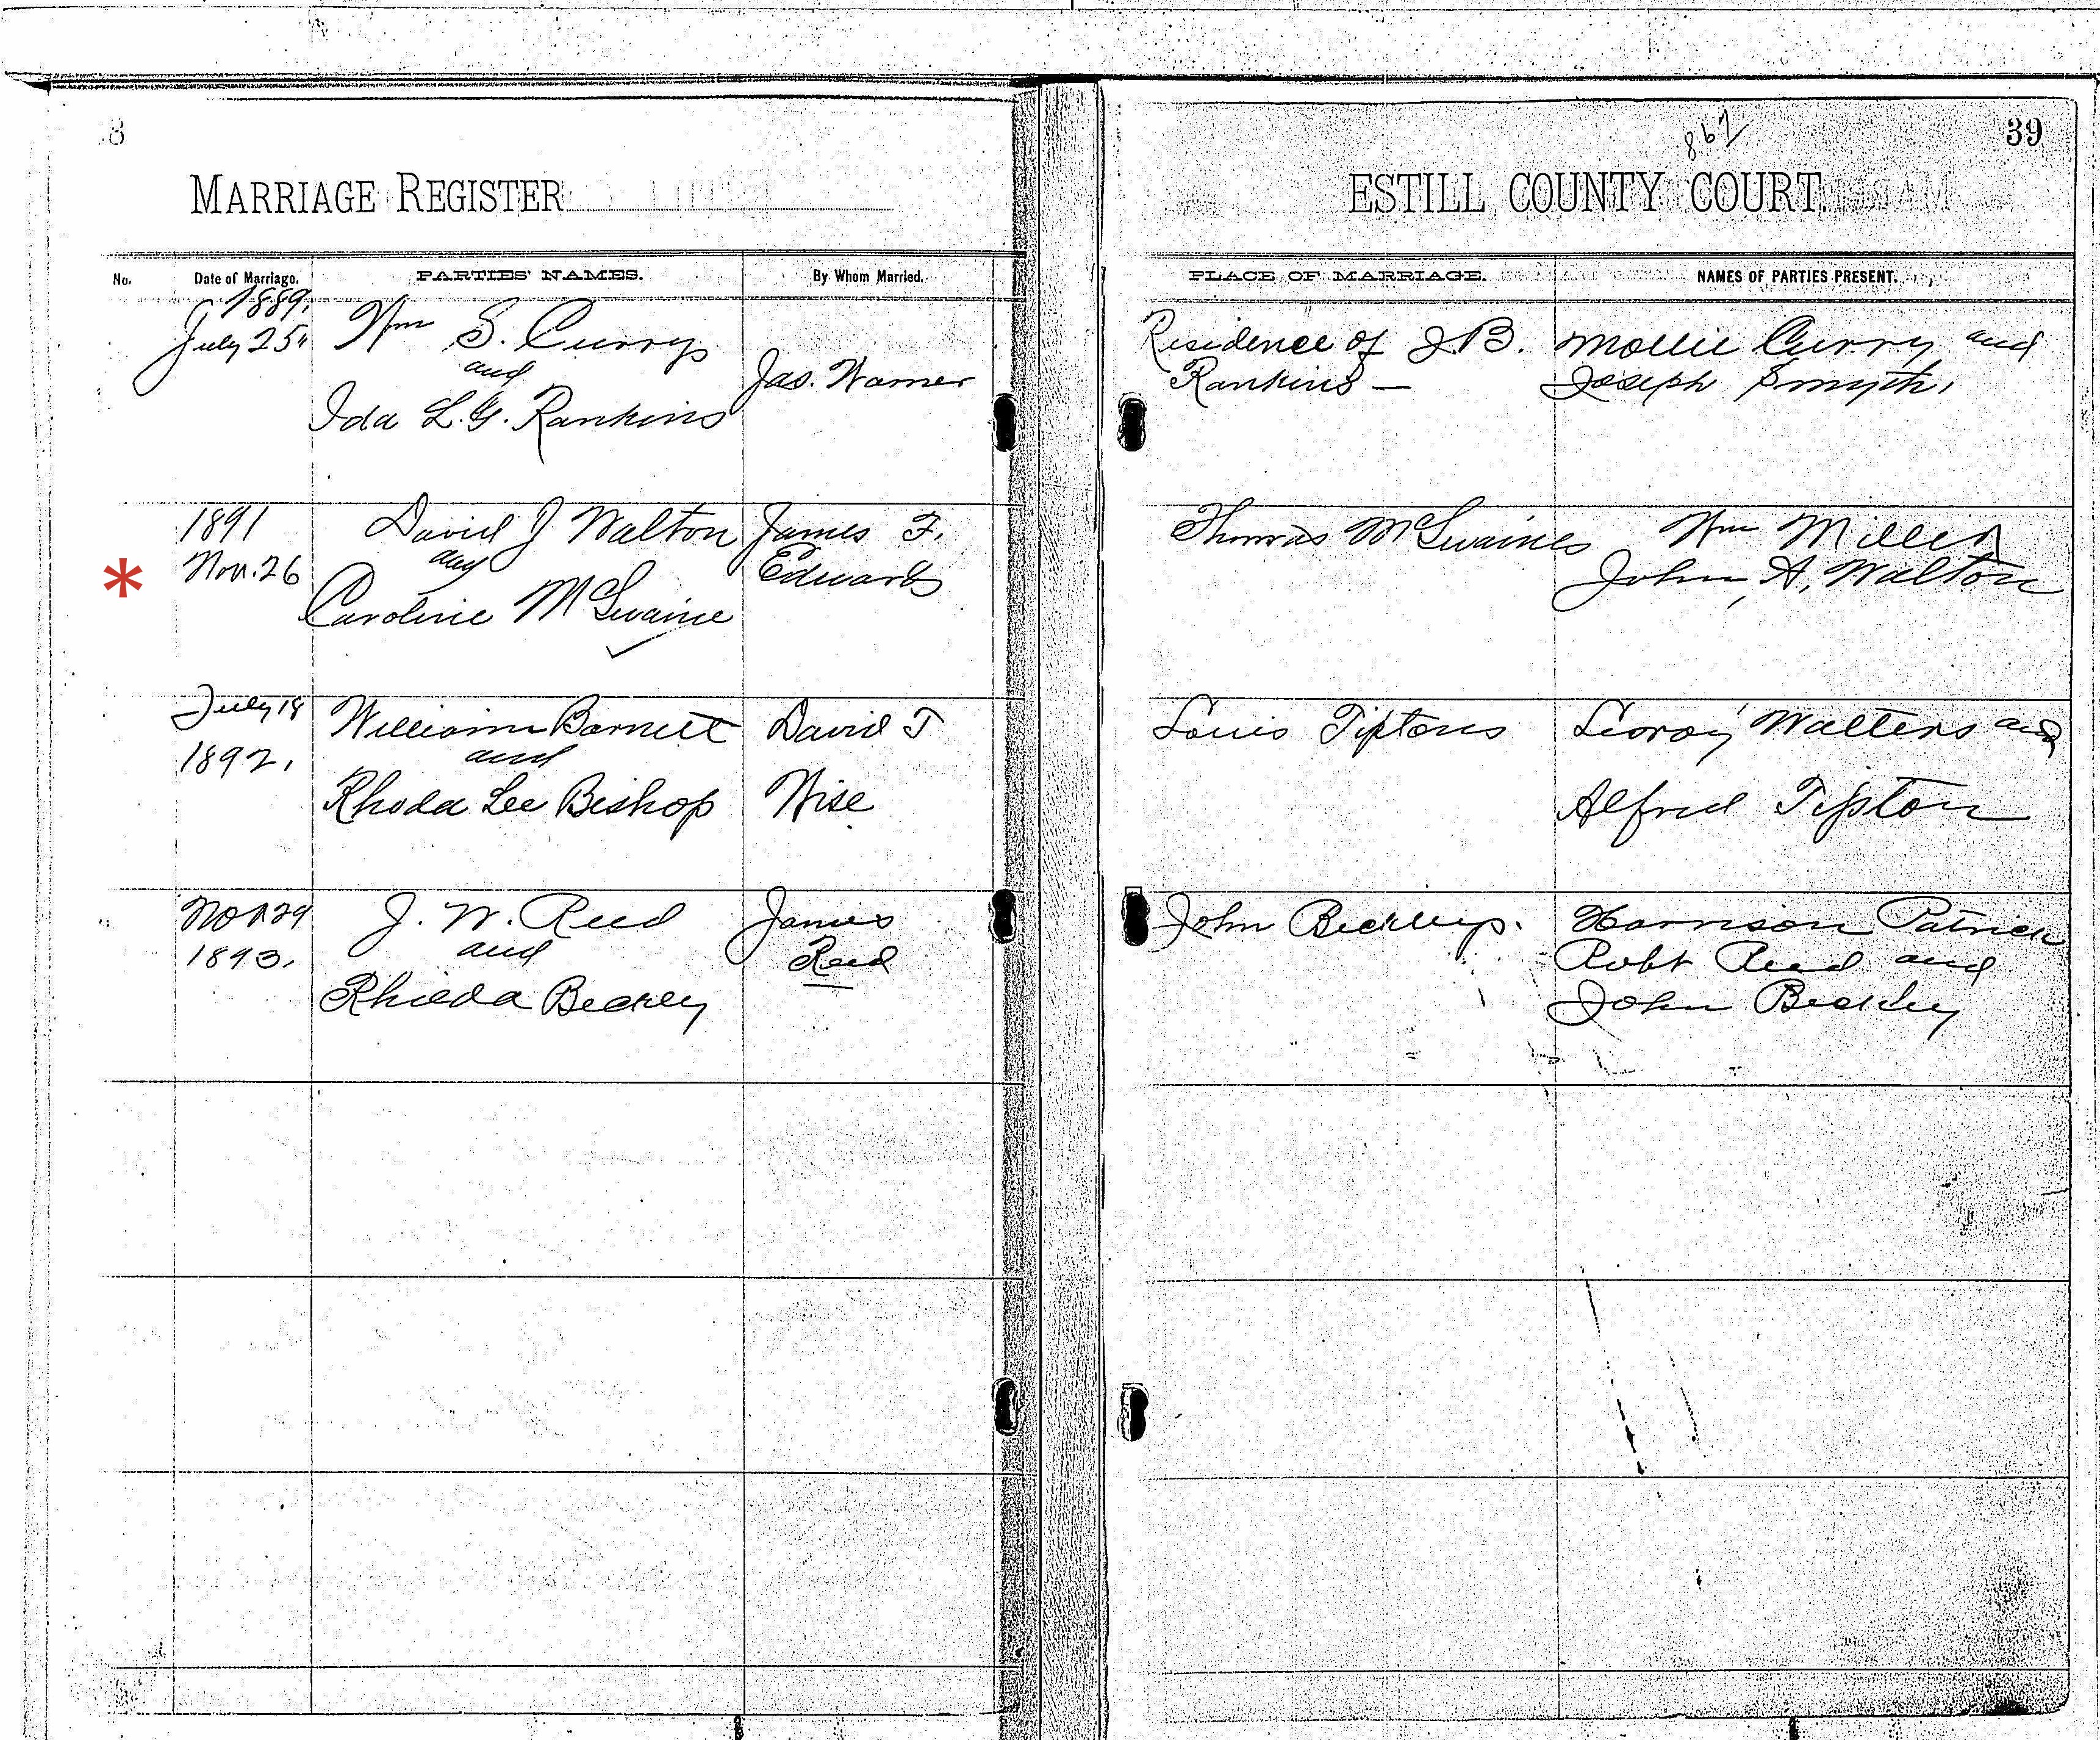 8
867
39
MARRIAGE REGISTER
ESTILL COUNTY COURT.
No.
Date of Marriage.
PARTIES' NAMES.
By Whom Married.
PLACE OF MARRIAGE.
NAMES OF PARTIES PRESENT.
1889.
July 25"
Wm S. Curry
and
Ida L. G. Rankins
Jas. Warner
Residence of J B.
Rankins —
Mollie Curry and
Joseph Smyth,
*
1891
Nov. 26
David J Walton
and
Caroline McSwaine
James F.
Edwards
Thomas McSwaines
Wm Miller
John A, Walton
July 18
1892,
William Barnett
and
Rhoda Lee Bishop
David T
Wise
Louis Tiptons
Leroy Walters and
Alfred Tipton
Nov 29
1893,
J. W. Reed
and
Rhieda Beckley
James
Reed
John Beckleys.
Harrison Patrick
Robt Reed and
John Beckley